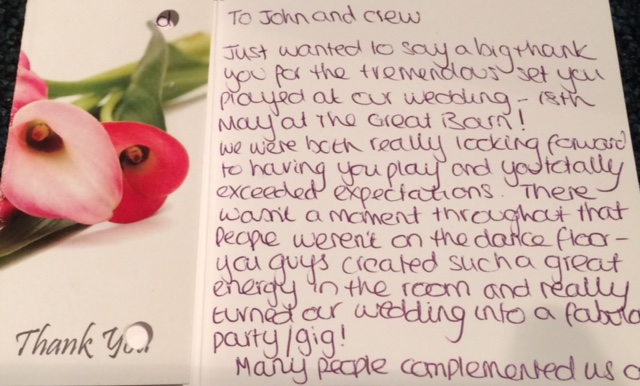 To John and crew
Just wanted to say a big thank
you for the tremendous set you
played at our wedding – 18th
May at The Great Barn!
We were both really looking forward
to having you play and you totally
exceeded expectations. There
wasnt a moment throughout that
people weren't on the dance floor –
you guys created such a great
energy in the room and really
turned our wedding into a
party/gig!
Many people complemented us
Thank You